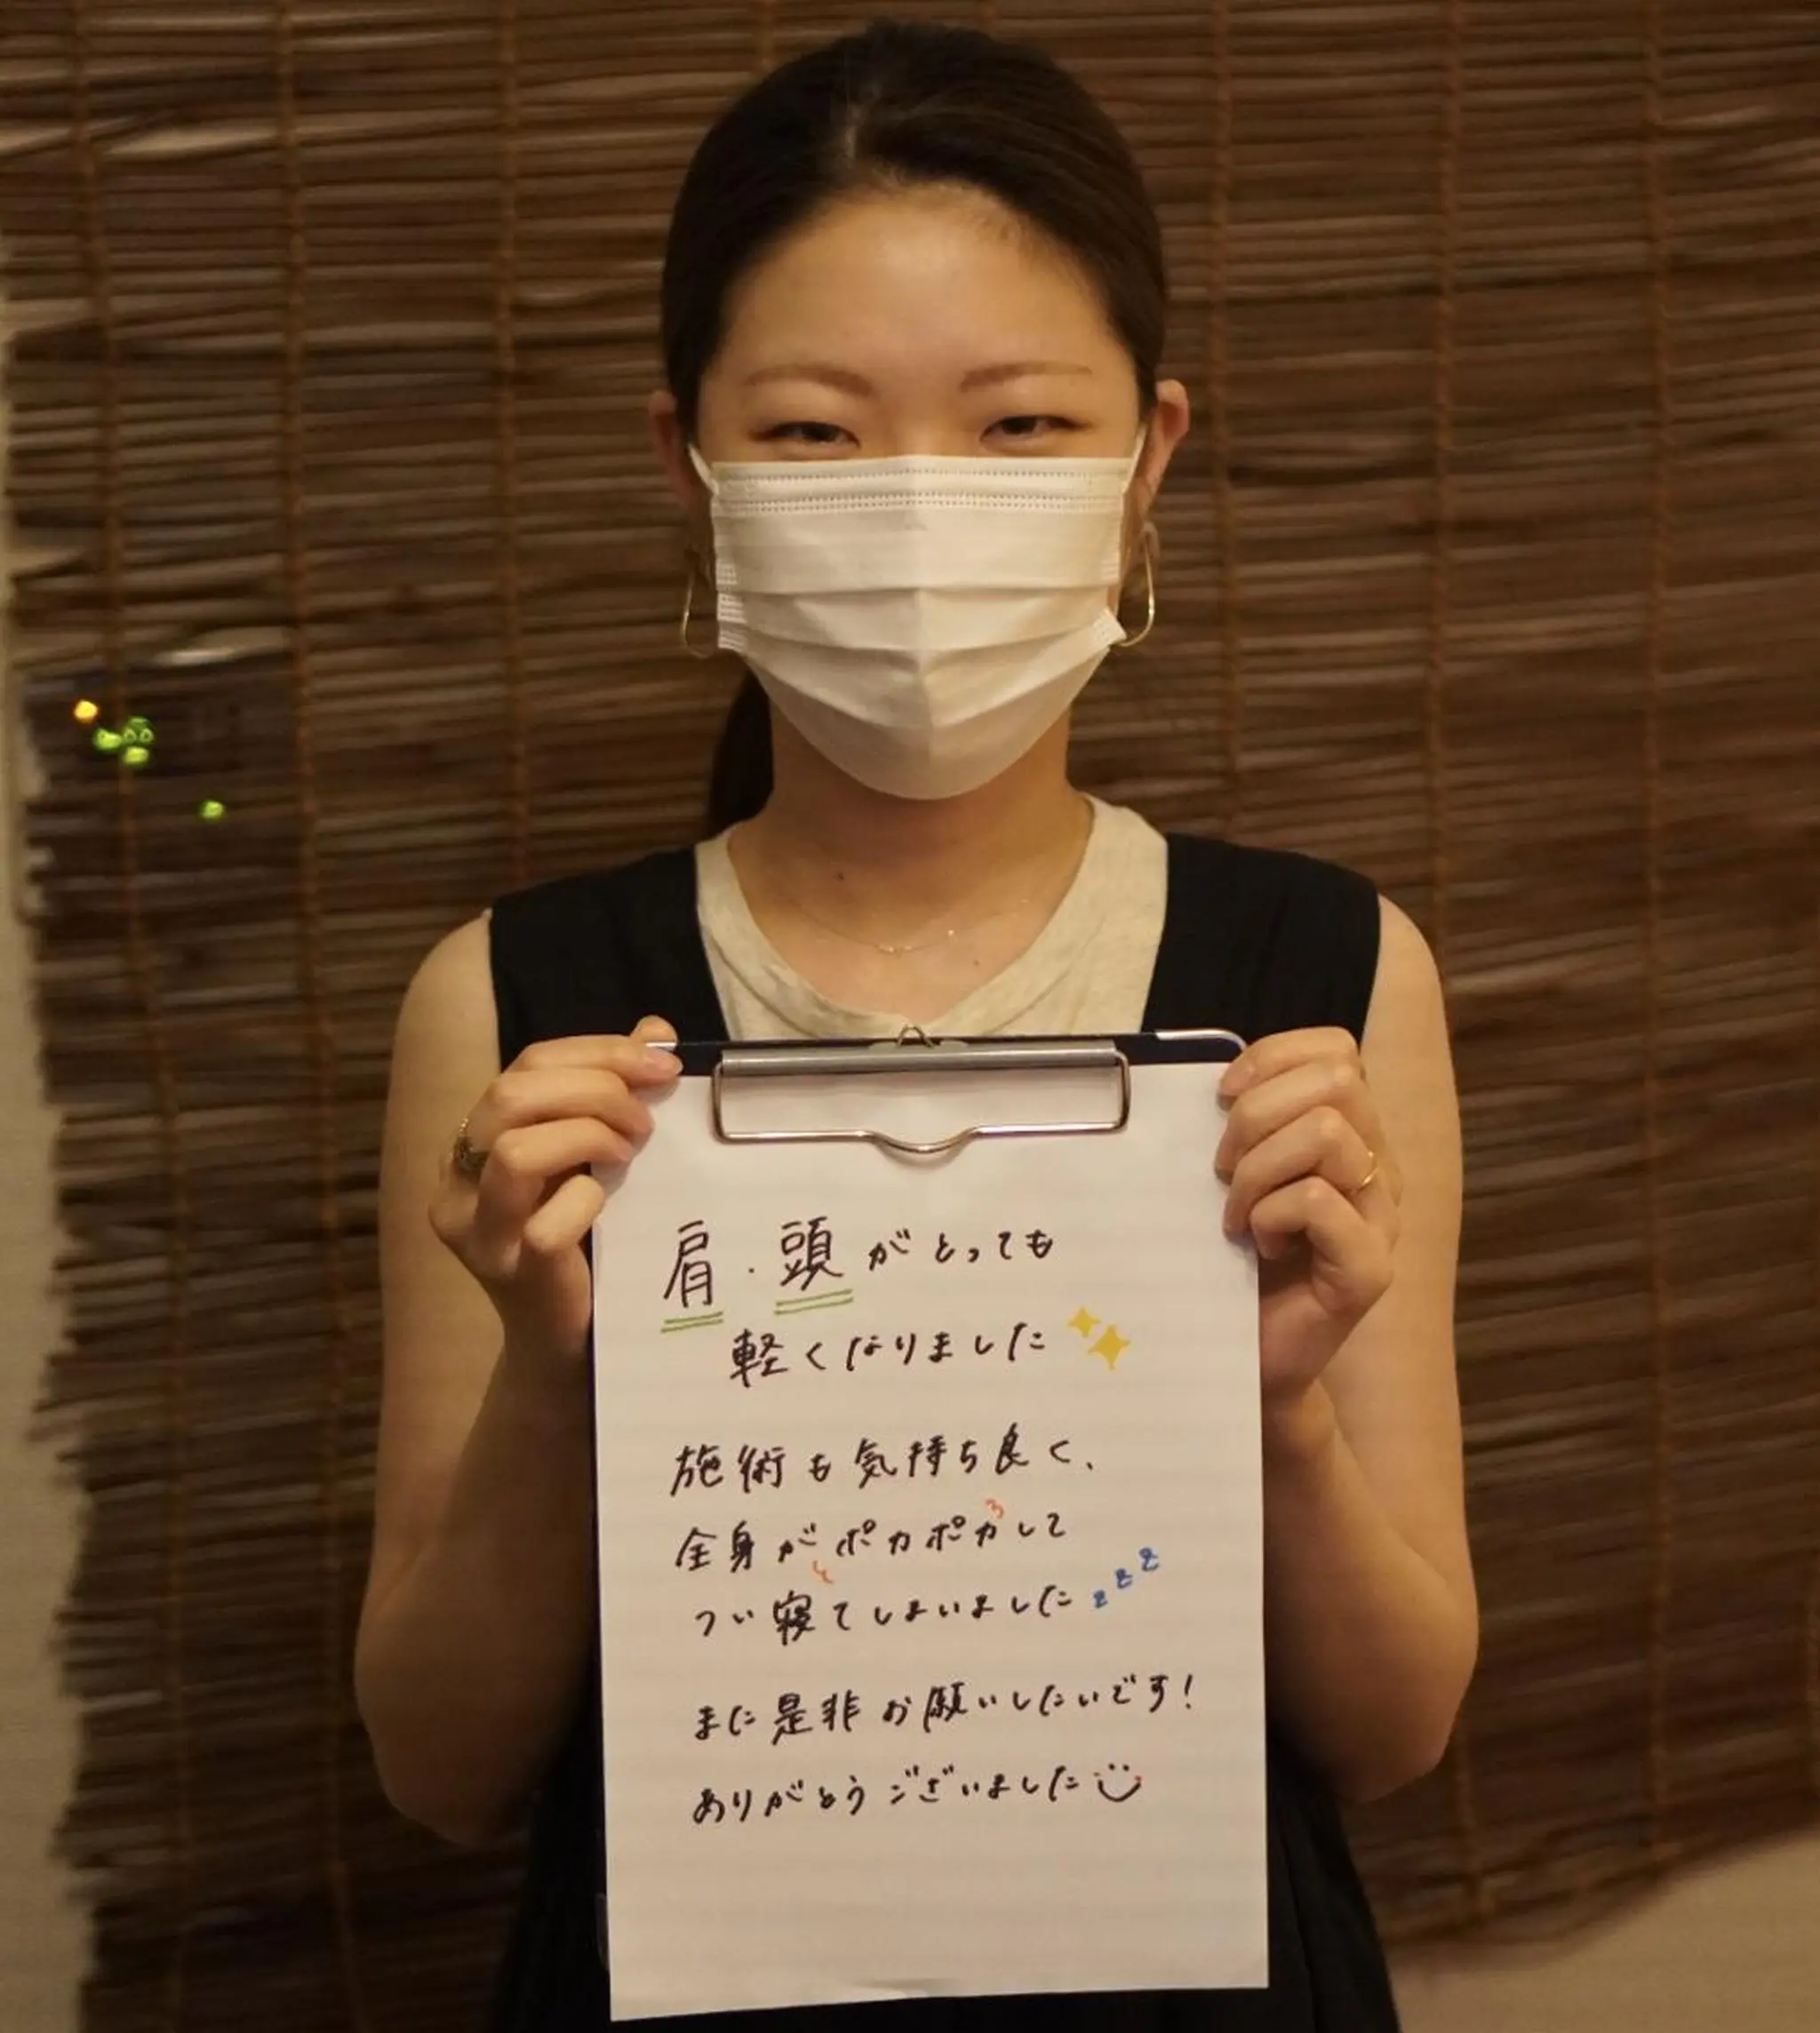 肩・頭がとっても
軽くなりました
施術も気持ち良く、
全身がポカポカして
つい寝てしまいましたzzz
また是非お願いしたいです!
ありがとうございました